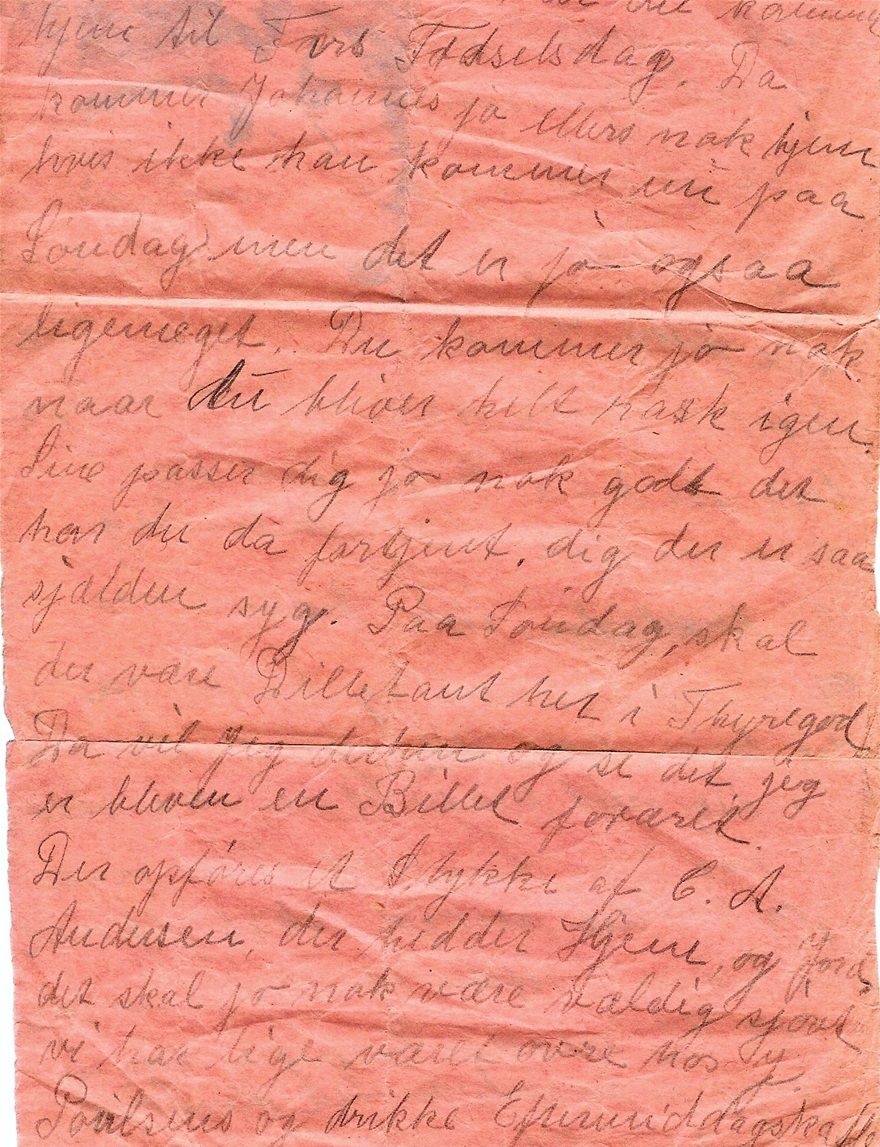 kommer
hjem til Fars Fødselsdag. Da
kommer Johannes jo ellers nok hjem
hvis ikke han kommer nu paa
Søndag men det er jo ogsaa
ligemeget. Du kommer jo nok
naar du bliver helt rask igen.
Sine passer dig jo nok godt det
har du da fortjent, dig der er saa
sjælden syg. Paa Søndag, skal
der være Dilletant her i Thyregod
Da vil jeg derhen og se det, jeg
er bleven en Billet foræret.
Der opføres et Stykke af C. A.
Andersen, der hedder Hjem, og Jord,
det skal jo nok være vældig sjovt
vi har lige været ovre hos J.
Poulsens og drikke Eftermiddagskaffe